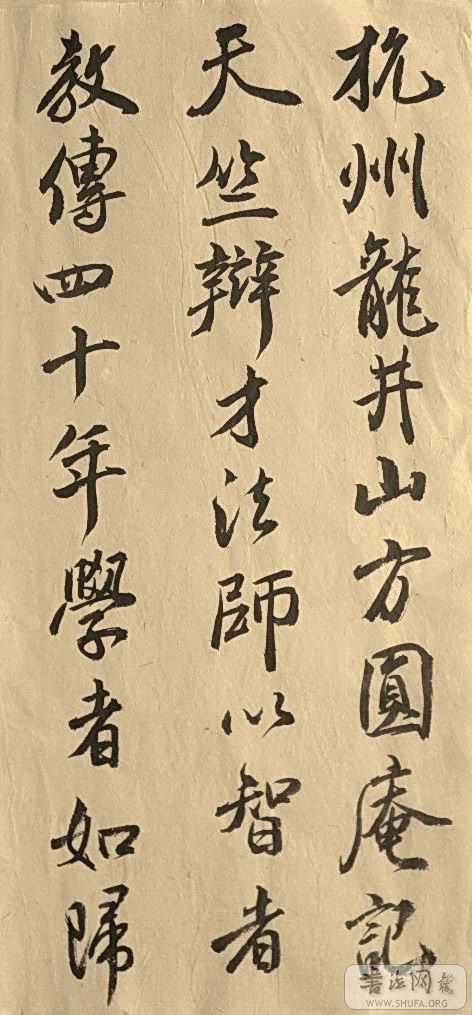 杭州龍井山方圓庵記
天竺辯才法師以智者
教傳四十年學者如歸
書法网
WWW.SHUFA.ORG